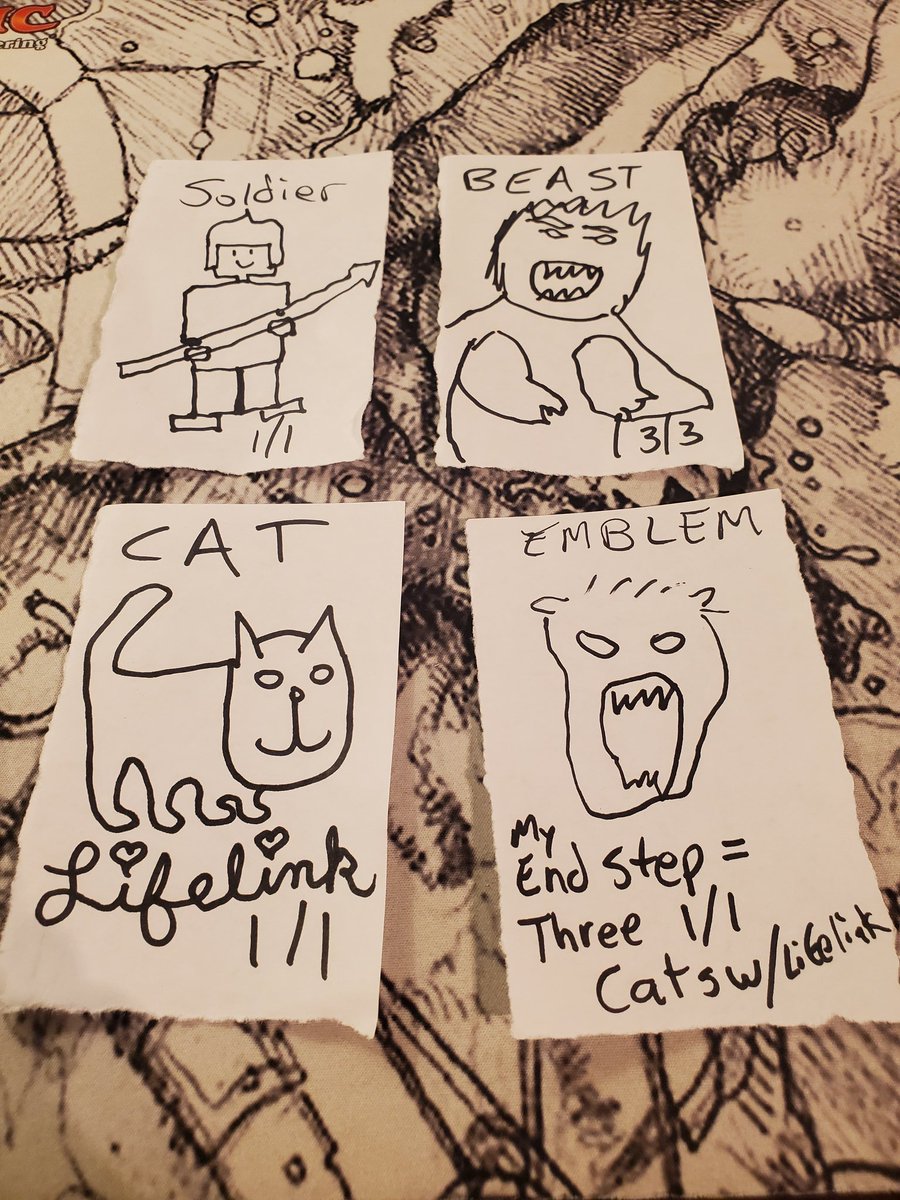 IC
ering
Soldier
1/1
BEAST
3/3
CAT
Lifelink
1/1
EMBLEM
My
End Step =
Three 1/1
Cats w/Lifelink